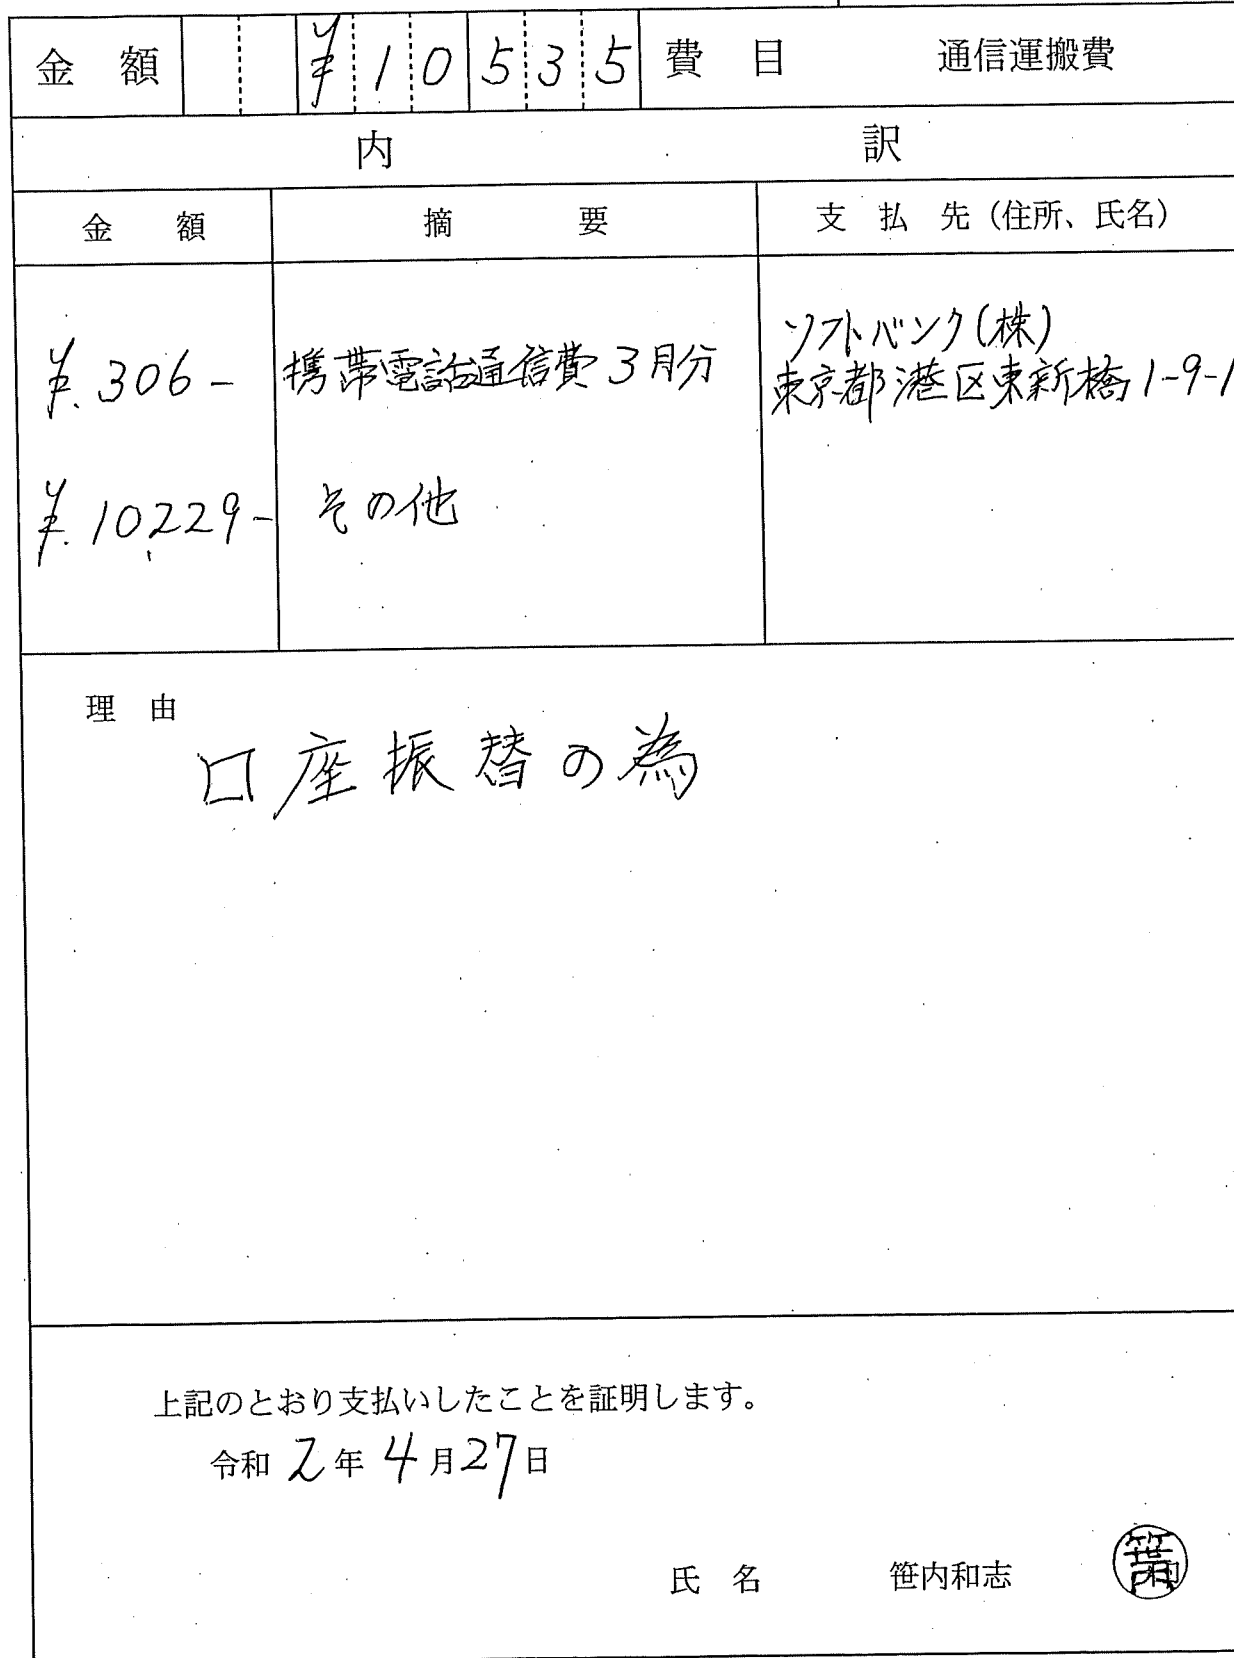 金 額 ¥10535 費 目 通信運搬費
内 訳
金 額 摘 要 支 払 先（住所、氏名）
¥.306- 携帯電話通信費3月分 ソフトバンク(株)
東京都港区東新橋1-9-1
¥.10,229- その他
理 由
口座振替の為
上記のとおり支払いしたことを証明します。
令和 2年 4月27日
氏 名 笹内和志 印
笹内